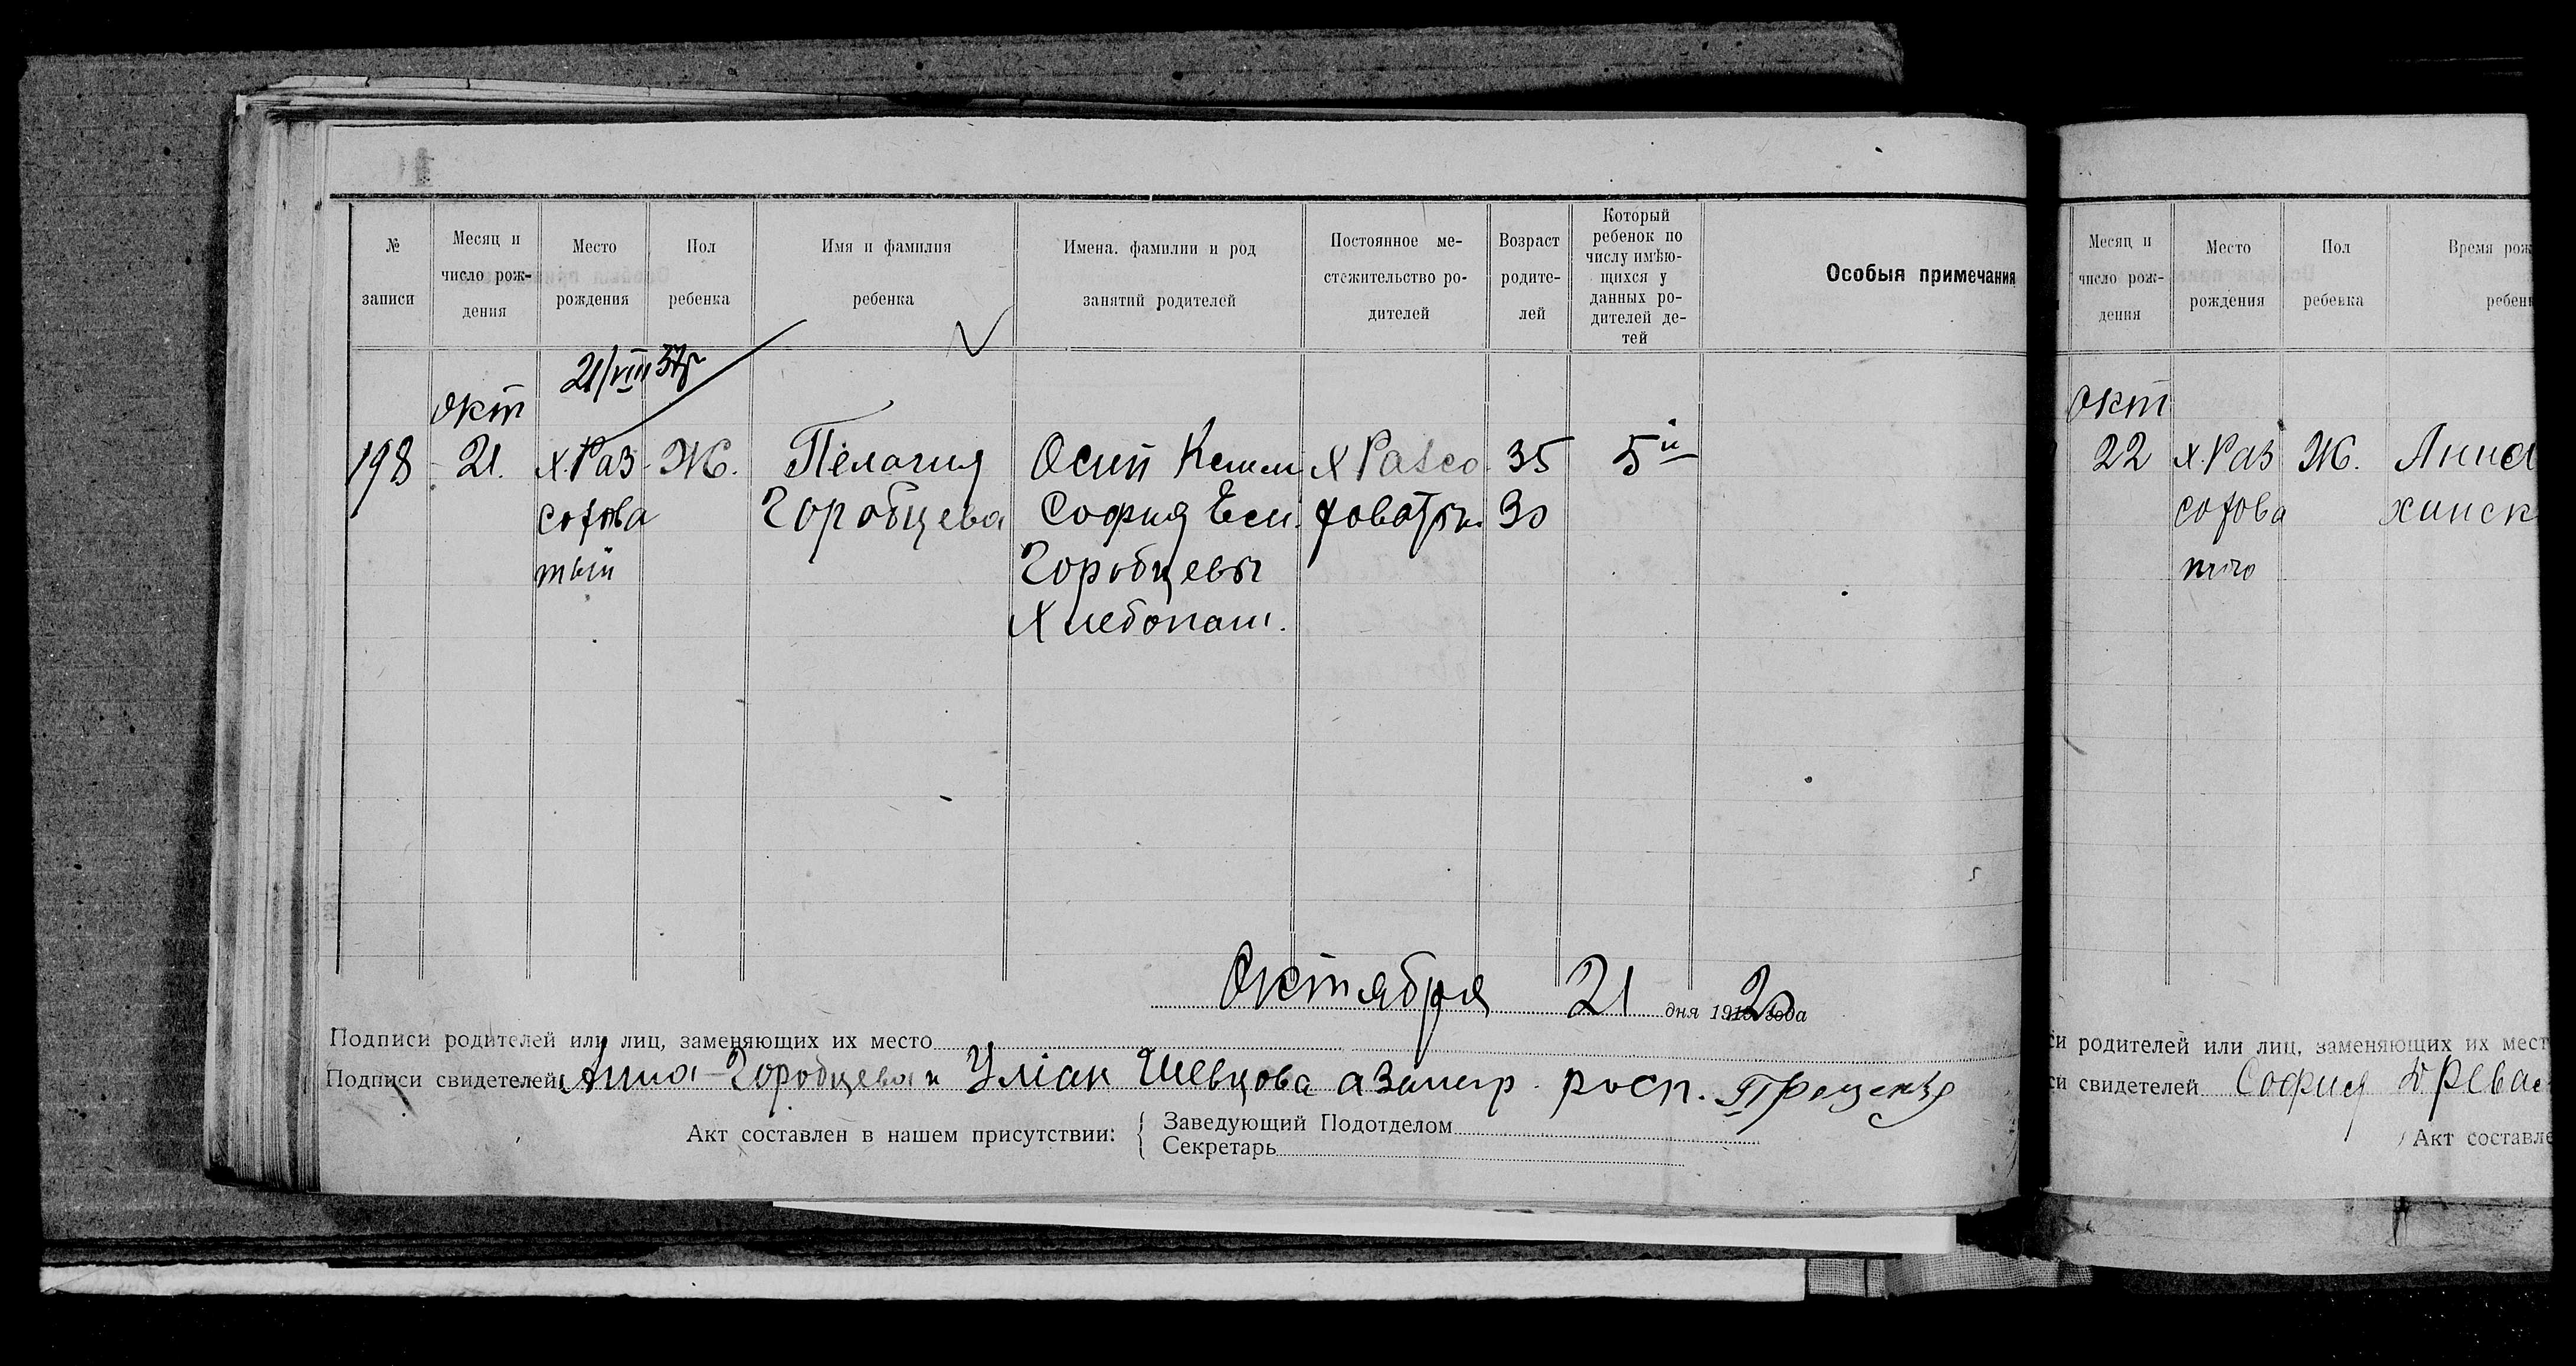 № записи
Месяц и число рождения
Место рождения
Пол ребенка
Имя и фамилия ребенка
Имена. фамилии и род занятий родителей
Постоянное местожительство родителей
Возраст родителей
Который ребенок по числу имѣющихся у данных родителей детей
Особыя примечания
21/VIII 37г
окт
198 21. х. Раз Ж. Пелагия Осип х Расco 35 5й
софова Горобцева София 30
тый Горобцевы
Хлебопаш.
Октября 21 дня 1920 года
Подписи родителей или лиц, заменяющих их место
Подписи свидетелей Анна Горобцева и Шевцова росп.
Акт составлен в нашем присутствии: { Заведующий Подотделом
Секретарь
Месяц и число рождения
Место рождения
Пол ребенка
Время рож
ребен
окт
22 х. Раз Ж. Анна
софова хинск
того
си родителей или лиц, заменяющих их мест
си свидетелей София
Акт составле